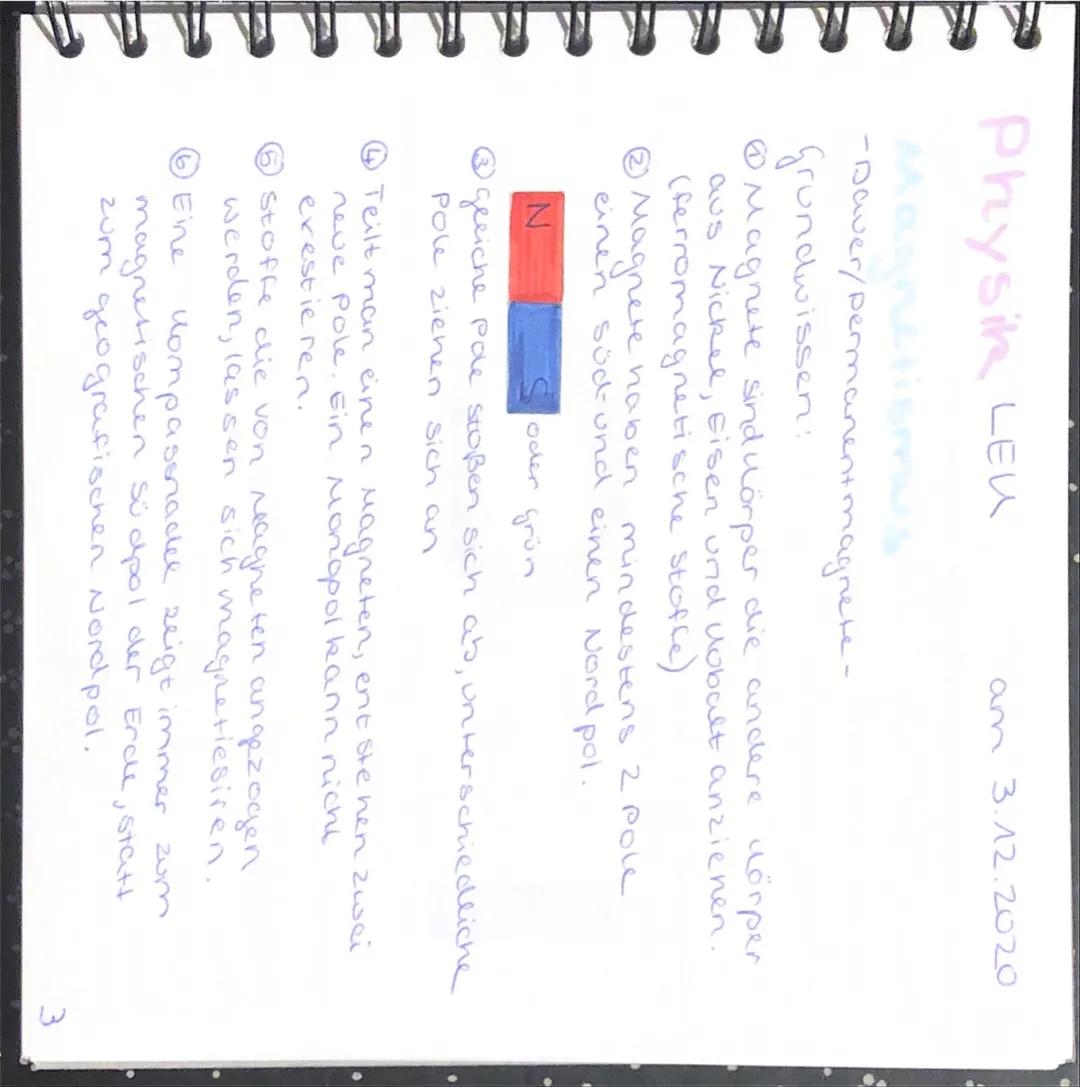 Physik LEK am 3.12.2020
Magnetismus
-Dauer/Permanentmagnete-
Grundwissen:
① Magnete sind Körper die andere Körper
aus Nickel, Eisen und Kobalt anziehen.
(ferromagnetische Stoffe)
② Magnete haben mindestens 2 Pole
einen Süd und einen Nordpol.
N S oder grün
③ Gleiche Pole stoßen sich ab, unterschiedliche
Pole ziehen sich an
④ Teilt man einen Magneten, entstehen zwei
neue Pole. Ein Monopol kann nicht
exestieren.
⑤ Stoffe die von Magneten angezogen
werden, lassen sich magnetiesiren.
⑥ Eine Kompassnadel zeigt immer zum
magnetischen Südpol der Erde, statt
zum geografischen Nordpol.
3